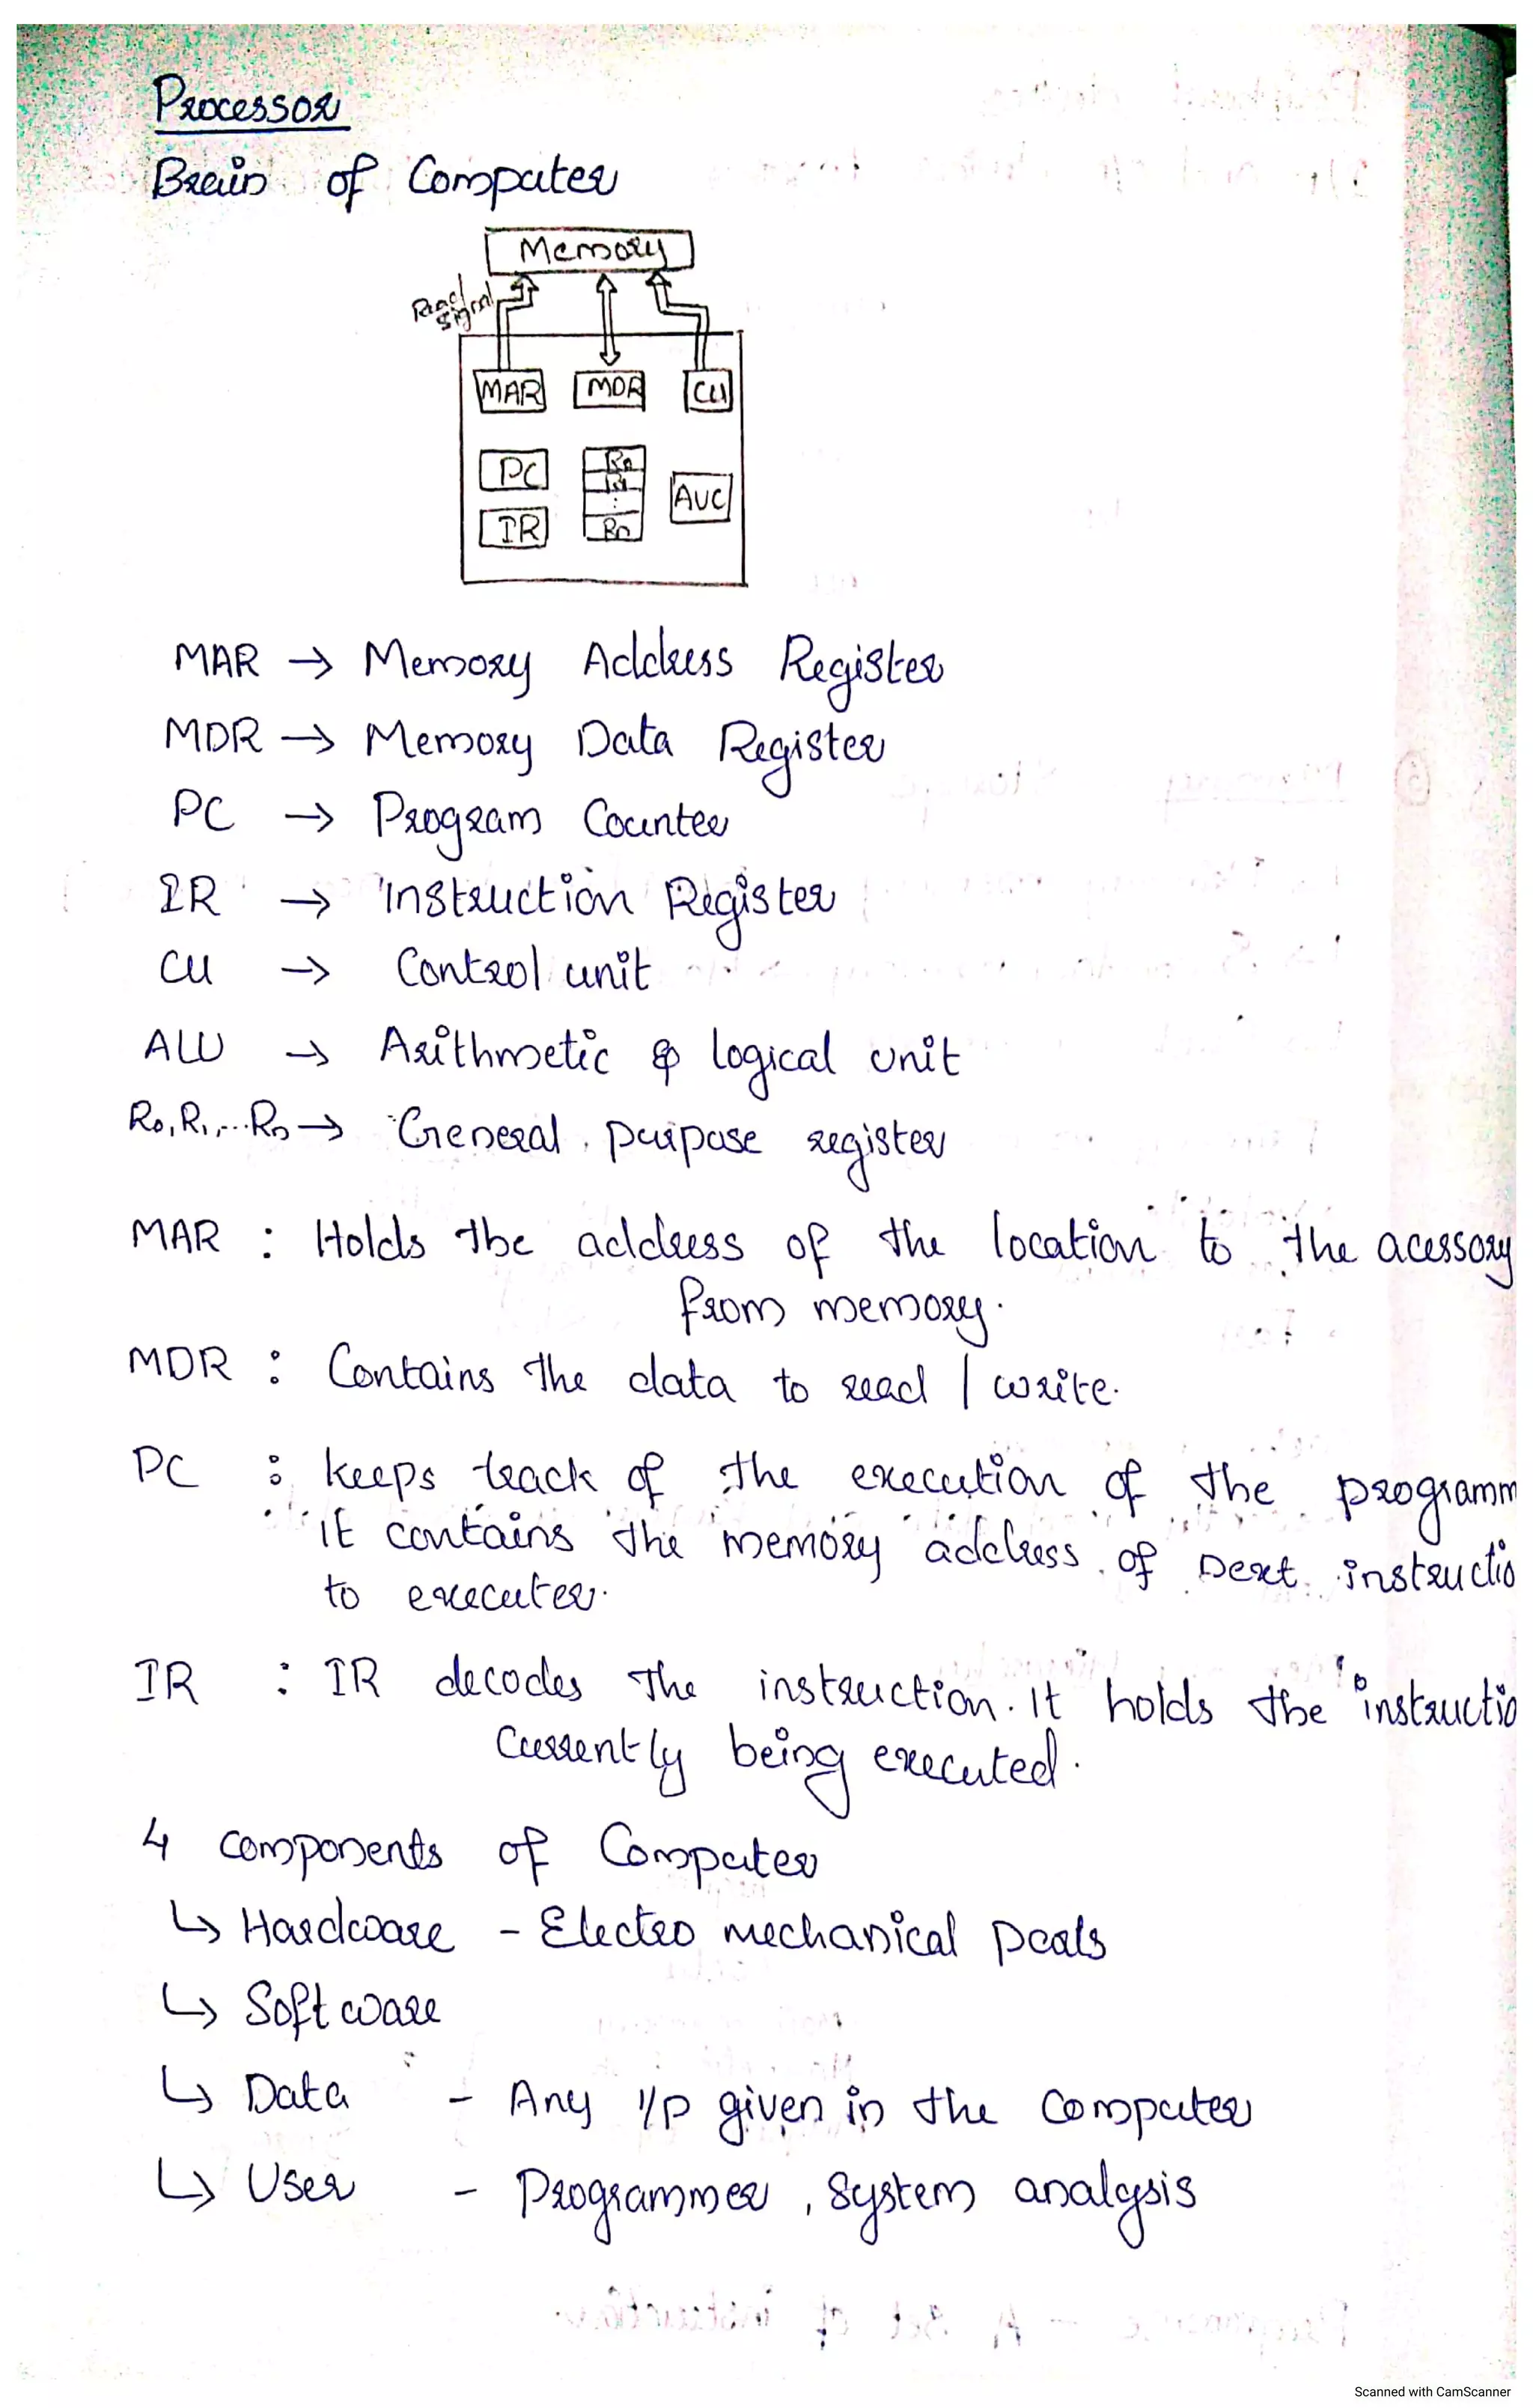 Processor
Brain of Computer
Memory
Read
signal
MAR MDR CU
PC
R0
R1
:
Rn
AUC
IR
MAR → Memory Address Register
MDR → Memory Data Register
PC → Program Counter
IR → Instruction Register
CU → Control unit
ALU → Arithmetic & logical unit
R0, R1, ... Rn → General purpose register
MAR : Holds the address of the location to the acessory
from memory.
MDR : Contains the data to read / write.
PC : keeps track of the execution of the programm
it contains the memory address of next instructio
to executer.
IR : IR decodes the instruction. It holds the instructio
Currently being executed.
4 components of Computer
↳ Hardware - Electro mechanical
↳ Software
↳ Data - Any i/p given in the Computer
↳ User - Programmer, System analysis
Scanned with CamScanner